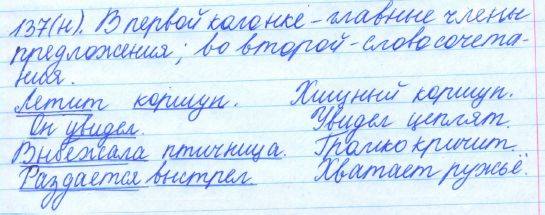 137(н). В первой колонке - главные члены
предложения; во второй - словосочета-
ния.
Летит коршун. Хищный коршун.
Он увидел. Увидел цеплят.
Выбежала птичница. Громко кричит.
Раздаётся выстрел. Хватает ружьё.